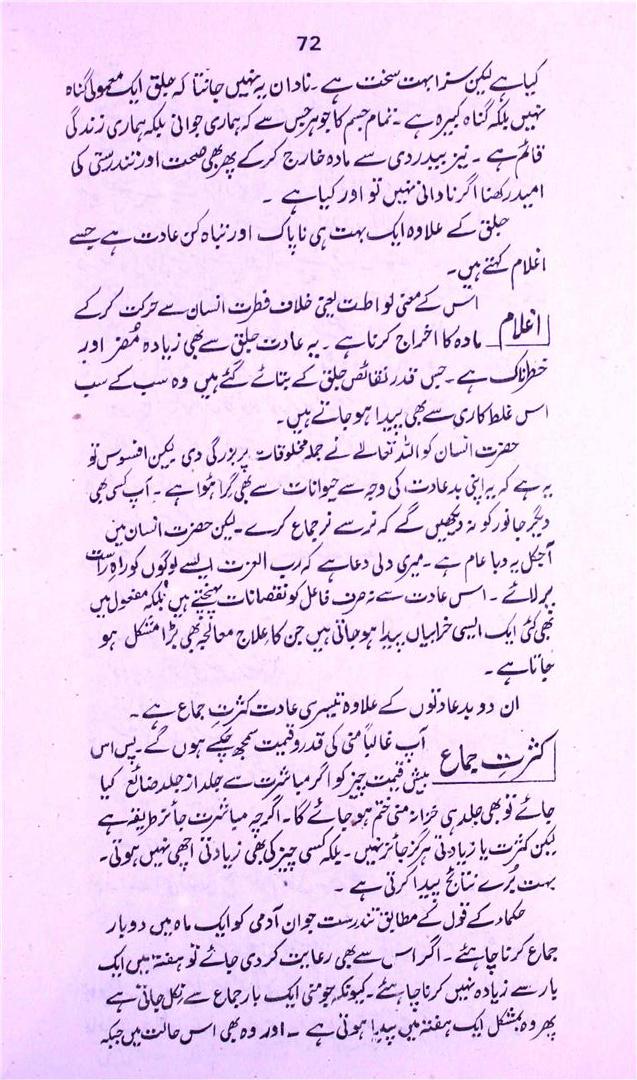 72
کیا ہے لیکن سزا بہت سخت ہے ۔ نادان یہ نہیں جانتا کہ جلق ایک معمولی گناہ
نہیں بلکہ گناہ کبیرہ ہے ۔ تمام جسم کا جوہر جس سے کہ ہماری جوانی بلکہ ہماری زندگی
قائم ہے ۔ نیز بیدردی سے مادہ خارج کرکے پھر بھی صحت اور تندرستی کی
امید رکھنا اگر نادانی نہیں تو اور کیا ہے ۔
جلق کے علاوہ ایک بہت ہی ناپاک اور تباہ کن عادت ہے جسے
اغلام کہتے ہیں۔
اس کے معنی لواطت یعنی خلاف فطرت انسان سے حرکت کرکے
اغلام مادہ کا اخراج کرنا ہے ۔ یہ عادت جلق سے بھی زیادہ مُضر اور
خطرناک ہے ۔ جس قدر نقائص جلق کے بتائے گئے ہیں وہ سب کے سب
اس غلط کاری سے بھی پیدا ہو جاتے ہیں۔
حضرت انسان کو اللہ تعالےٰ نے جملہ مخلوقات پر بزرگی دی لیکن افسوس تو
یہ ہے کہ یہ اپنی بدعادت کی وجہ سے حیوانات سے بھی گرا ہُوا ہے ۔ آپ کسی بھی
دیگر جانور کو نہ دیکھیں گے کہ نر سے نر جماع کرے ۔ لیکن حضرت انسان میں
آجکل یہ وبا عام ہے ۔ میری دلی دعا ہے کہ رب العزت ایسے لوگوں کو راہِ راست
پر لائے ۔ اس عادت سے نہ صرف فاعل کو نقصانات پہنچتے ہیں بلکہ مفعول میں
بھی کئی ایک ایسی خرابیاں پیدا ہو جاتی ہیں جن کا علاج معالجہ بھی بڑا مشکل ہو
جاتا ہے ۔
ان دو بدعادتوں کے علاوہ تیسری عادت کثرتِ جماع ہے ۔
آپ غالباً منی کی قدر و قیمت سمجھ چکے ہوں گے ۔ پس اس
کثرتِ جماع بیش قیمت چیز کو اگر مباشرت سے جلد از جلد ضائع کیا
جائے تو بھی جلد ہی خزانہ منی ختم ہو جائے گا۔ اگرچہ مباشرت جائز طریقہ ہے
لیکن کثرت یا زیادتی ہرگز جائز نہیں ۔ بلکہ کسی چیز کی بھی زیادتی اچھی نہیں ہوتی۔
بہت بُرے نتائج پیدا کرتی ہے ۔
حکماء کے قول کے مطابق تندرست جوان آدمی کو ایک ماہ میں دو بار
جماع کرنا چاہئے ۔ اگر اس سے بھی رعایت کر دی جائے تو ہفتہ میں ایک
بار سے زیادہ نہیں کرنا چاہئے ۔ کیونکہ جو منی ایک بار جماع سے نکل جاتی ہے
پھر وہ بمشکل ایک ہفتہ میں پیدا ہوتی ہے ۔ اور وہ بھی اس حالت میں جبکہ